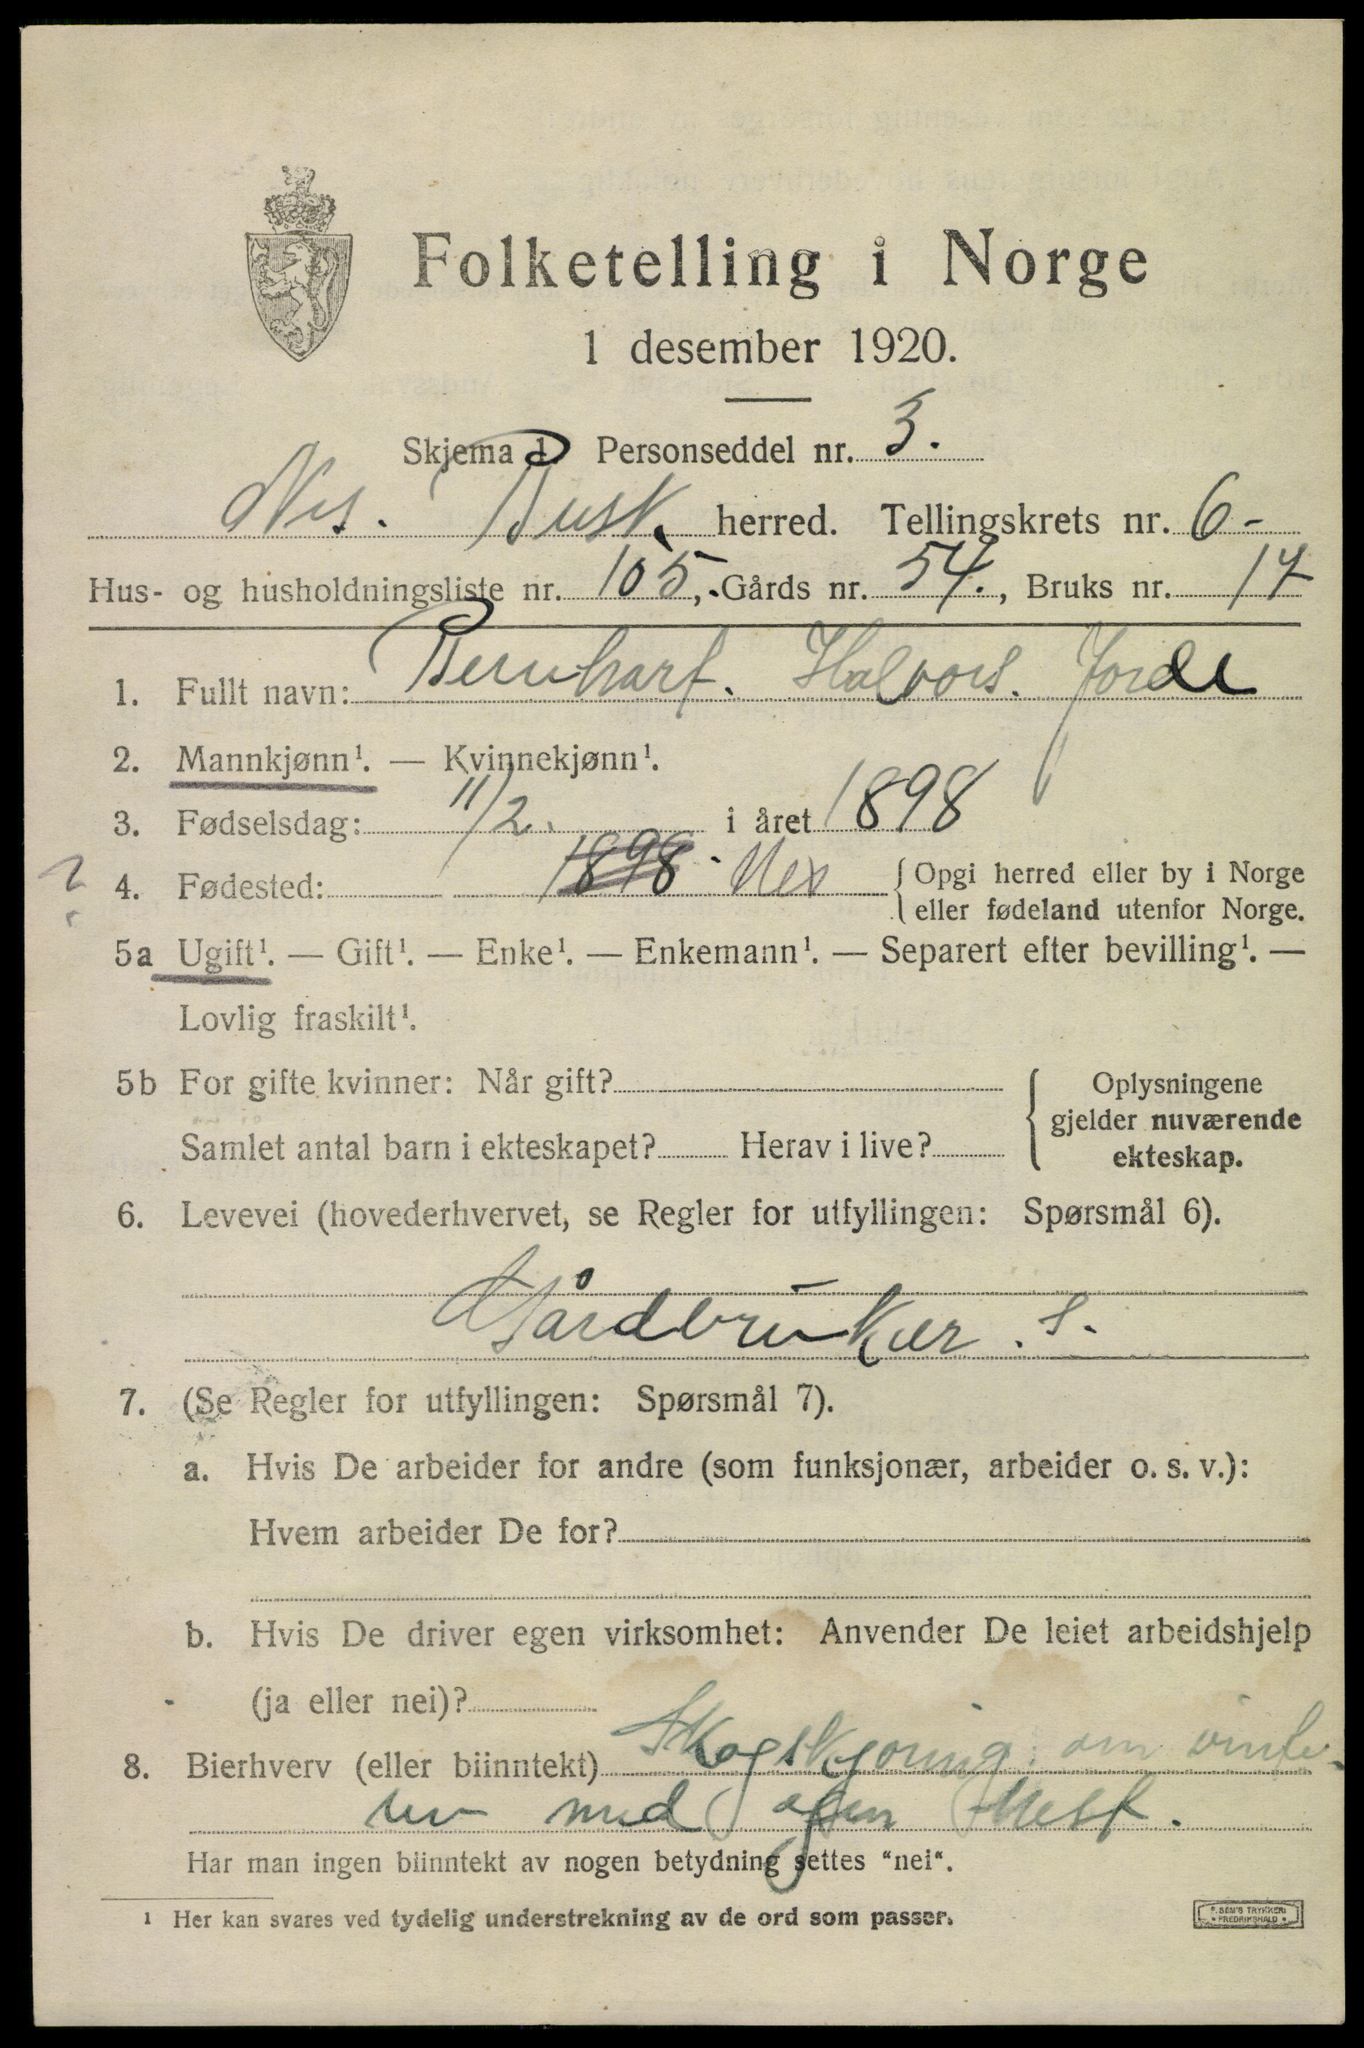 Folketelling i Norge
1 desember 1920.
Skjema d Personseddel nr. 3.
Nes. Busk. herred. Tellingskrets nr. 6-
Hus- og husholdningsliste nr. 105, Gårds nr. 54., Bruks nr. 17
1. Fullt navn: Bernhart. Halvors. Jorde
2. Mannkjønn¹. — Kvinnekjønn¹.
3. Fødselsdag: 11/2. i året 1898
? 4. Fødested: 1898. Nes { Opgi herred eller by i Norge
eller fødeland utenfor Norge.
5a Ugift¹. — Gift¹. — Enke¹. — Enkemann¹. — Separert efter bevilling¹. —
Lovlig fraskilt¹.
5b For gifte kvinner: Når gift? { Oplysningene
gjelder nuværende
Samlet antal barn i ekteskapet? Herav i live?
ekteskap.
6. Levevei (hovederhvervet, se Regler for utfyllingen: Spørsmål 6).
Gårdbruker. s.
7. (Se Regler for utfyllingen: Spørsmål 7).
a. Hvis De arbeider for andre (som funksjonær, arbeider o. s. v.):
Hvem arbeider De for?
b. Hvis De driver egen virksomhet: Anvender De leiet arbeidshjelp
(ja eller nei)?
8. Bierhverv (eller biinntekt) Skogskjøring om vinte-
ren med egen Hest.
Har man ingen biinntekt av nogen betydning settes "nei".
¹ Her kan svares ved tydelig understrekning av de ord som passer.
SEM'S TRYKKERI
FREDRIKSHALD